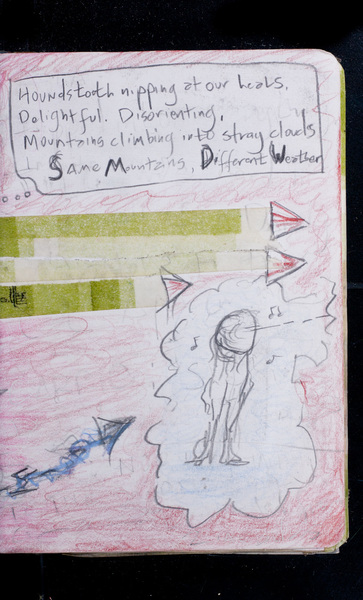 Houndstooth nipping at our heals.
Dolightful. Disorienting.
Mountains climbing into stray clouds
Same Mountains, Different Weather